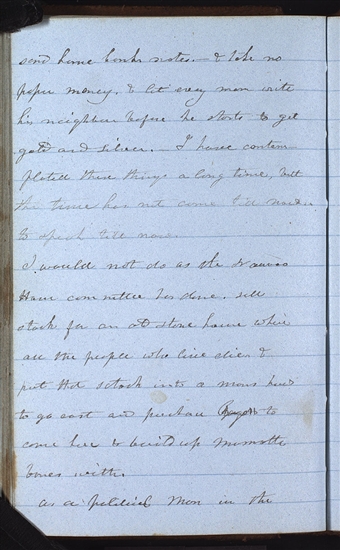 send home bank notes.— & take no
paper money. & let every man write
his neighbour before he starts to get
gold and silver.— I have contem
plated these things a long time, but
the time has not come till now
to speak till now.
I would not do as the Nauvoo
House committee has done. sell
stock for an old stone house where
all the people who live die. &
put that stock into a mans hand
to go east and purchase Rags to
come here & build up mammoth
bones with.
as a political man in the